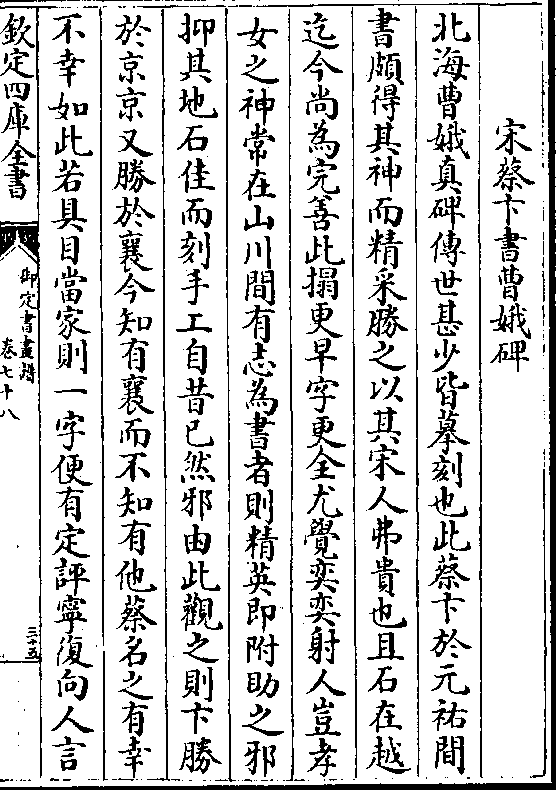 宋蔡卞書曹娥碑
北海曹娥真碑傳世甚少皆摹刻也此蔡卞於元祐間
書頗得其神而精采勝之以其宋人弗貴也且石在越
迄今尚為完善此搨更早字更全尤覺奕奕射人豈孝
女之神常在山川間有志為書者則精英即附助之邪
抑其地石佳而刻手工自昔已然邪由此觀之則卞勝
於京京又勝於襄今知有襄而不知有他蔡名之有幸
不幸如此若具目當家則一字便有定評寧復向人言
欽定四庫全書
御定書畫譜
卷七十八
三十五